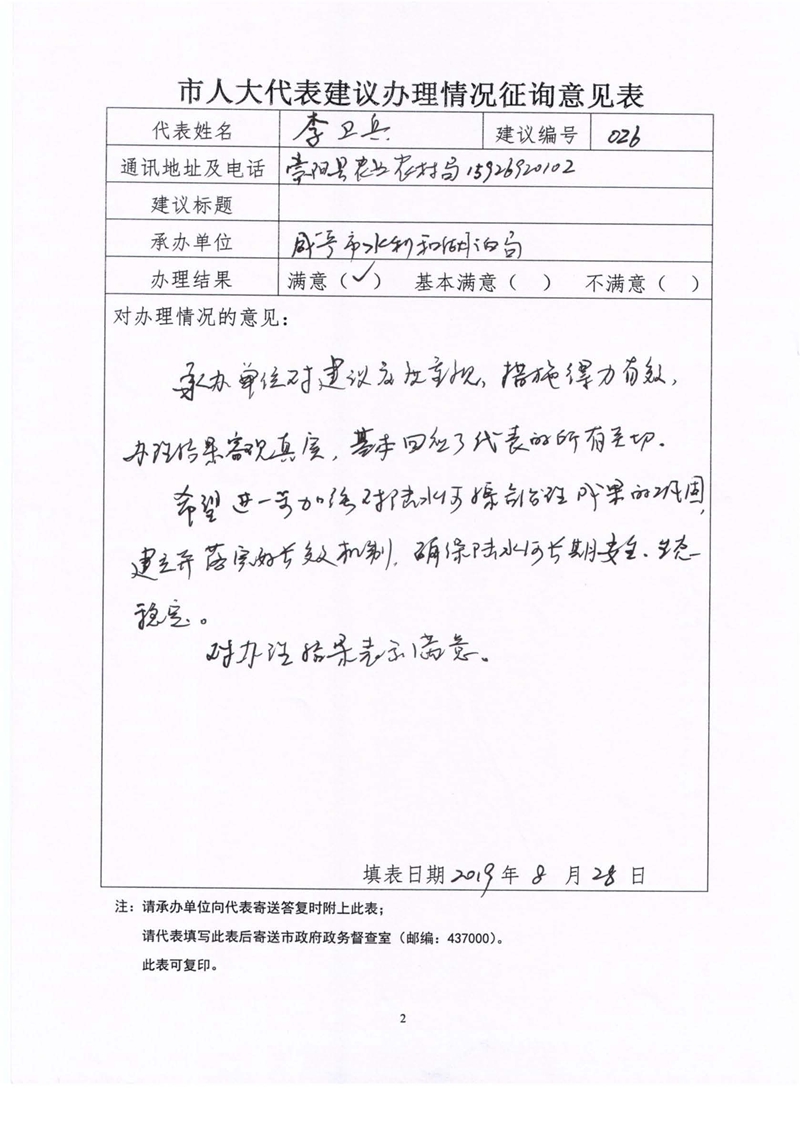 市人大代表建议办理情况征询意见表
代表姓名 李卫兵 建议编号 026
通讯地址及电话 崇阳县农业农村局 15926920102
建议标题
承办单位 咸宁市水利和湖泊局
办理结果 满意（✓） 基本满意（ ） 不满意（ ）
对办理情况的意见：
承办单位对建议高度重视，措施得力有效，
办理结果客观真实，基本回应了代表的所有关切。
希望进一步加强对陆水河综合治理成果的巩固，
建立并落实好长效机制，确保陆水河长期安全、生态
稳定。
对办理结果表示满意。
填表日期 2019 年 8 月 28 日
注：请承办单位向代表寄送答复时附上此表；
请代表填写此表后寄送市政府政务督查室（邮编：437000）。
此表可复印。
2